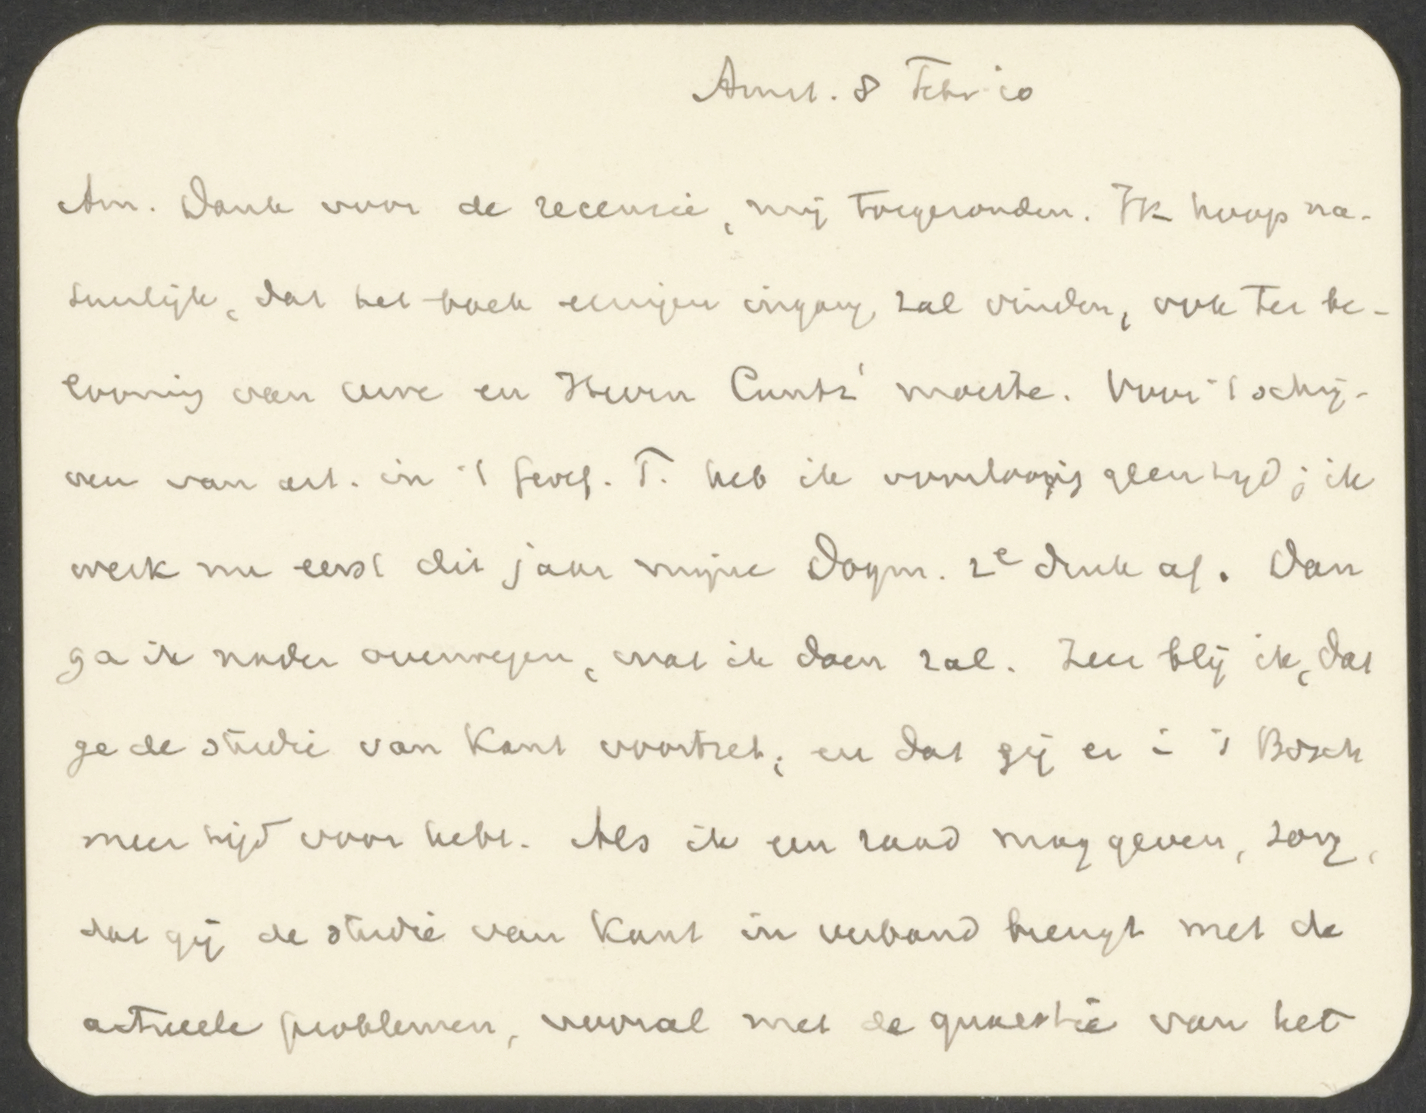 Amst. 8 Febr. '10
Am. Dank voor de recensie, mij toegezonden. Ik hoop na-
tuurlijk, dat het boek eenigen ingang zal vinden, ook ter be-
looning van uwe en Heeren Cuntz' moeite. Voor 't schrij-
ven van art. in 't Geref. T. heb ik voorloopig geen tijd; ik
werk nu eerst dit jaar mijne Dogm. 2e druk af. Dan
ga ik nader overwegen, wat ik doen zal. Zeer blij ik, dat
ge de studie van Kant voortzet, en dat gij er in 's Bosch
meer tijd voor hebt. Als ik een raad mag geven, zorg,
dat gij de studie van Kant in verband brengt met de
actueele problemen, vooral met de quaestie van het